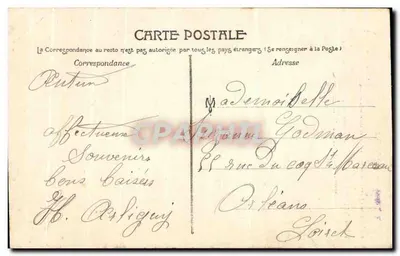 CARTE POSTALE
La Correspondance au recto n'est pas autorisée par tous les pays étrangers (Se renseigner à la Poste)
Correspondance
Adresse
Autun
affectueux
Souvenirs
bons baisers
Mademoiselle
Godman
55 rue du coq St Marceau
Orléans
Loiret